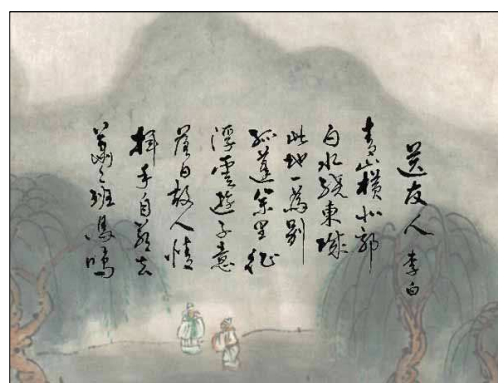 送友人 李白
青山横北郭
白水绕東城
此地一為别
孤蓬萬里征
浮雲遊子意
落日故人情
揮手自兹去
蕭蕭班馬鳴